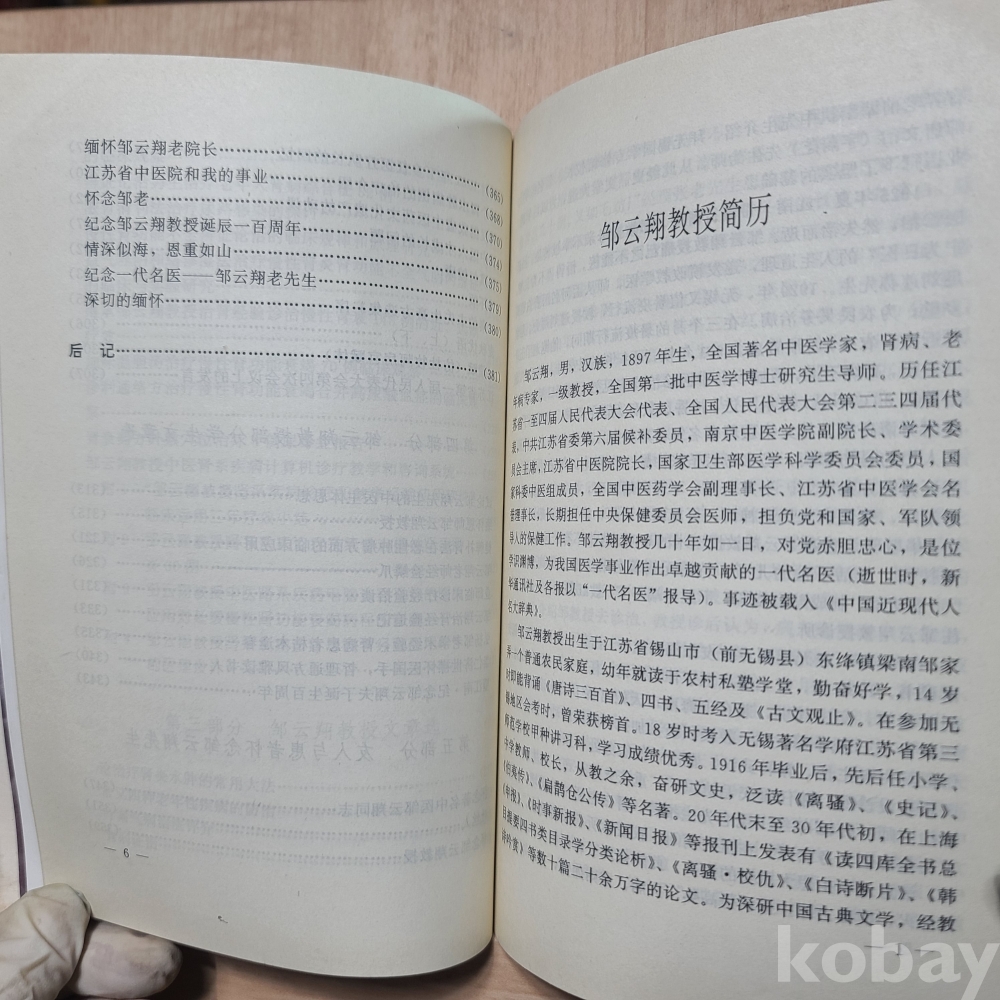 缅怀邹云翔老院长
江苏省中医院和我的事业 (365)
怀念邹老 (368)
纪念邹云翔教授诞辰一百周年 (370)
情深似海，恩重如山 (374)
纪念一代名医——邹云翔老先生 (375)
深切的缅怀 (379)
(380)
后 记 (381)
— 6 —
邹云翔教授简历
邹云翔，男，汉族，1897年生，全国著名中医学家，肾病、老
年病专家，一级教授，全国第一批中医学博士研究生导师。历任江
苏省一至四届人民代表大会代表、全国人民代表大会第二三四届代
表，中共江苏省委第六届候补委员，南京中医学院副院长、学术委
员会主席，江苏省中医院院长，国家卫生部医学科学委员会委员，国
家科委中医组成员，全国中医药学会副理事长、江苏省中医学会名
誉理事长，长期担任中央保健委员会医师，担负党和国家、军队领
导人的保健工作。邹云翔教授几十年如一日，对党赤胆忠心，是位
学识渊博，为我国医学事业作出卓越贡献的一代名医（逝世时，新
华通讯社及各报以“一代名医”报导）。事迹被载入《中国近现代人
名大辞典》。
邹云翔教授出生于江苏省锡山市（前无锡县）东绛镇梁南邹家
弄一个普通农民家庭，幼年就读于农村私塾学堂，勤奋好学，14岁
时即能背诵《唐诗三百首》、四书、五经及《古文观止》。在参加无
锡地区会考时，曾荣获榜首。18岁时考入无锡著名学府江苏省第三
师范学校甲种讲习科，学习成绩优秀。1916年毕业后，先后任小学、
中学教师、校长，从教之余，奋研文史，泛读《离骚》、《史记》、
《伯夷传》、《扁鹊仓公传》等名著。20年代末至30年代初，在上海
《申报》、《时事新报》、《新闻日报》等报刊上发表有《读四库全书总
目提要四书类目录学分类论析》、《离骚·校仇》、《白诗断片》、《韩
诗吟赏》等数十篇二十余万字的论文。为深研中国古典文学，经教
— 1 —
kobay